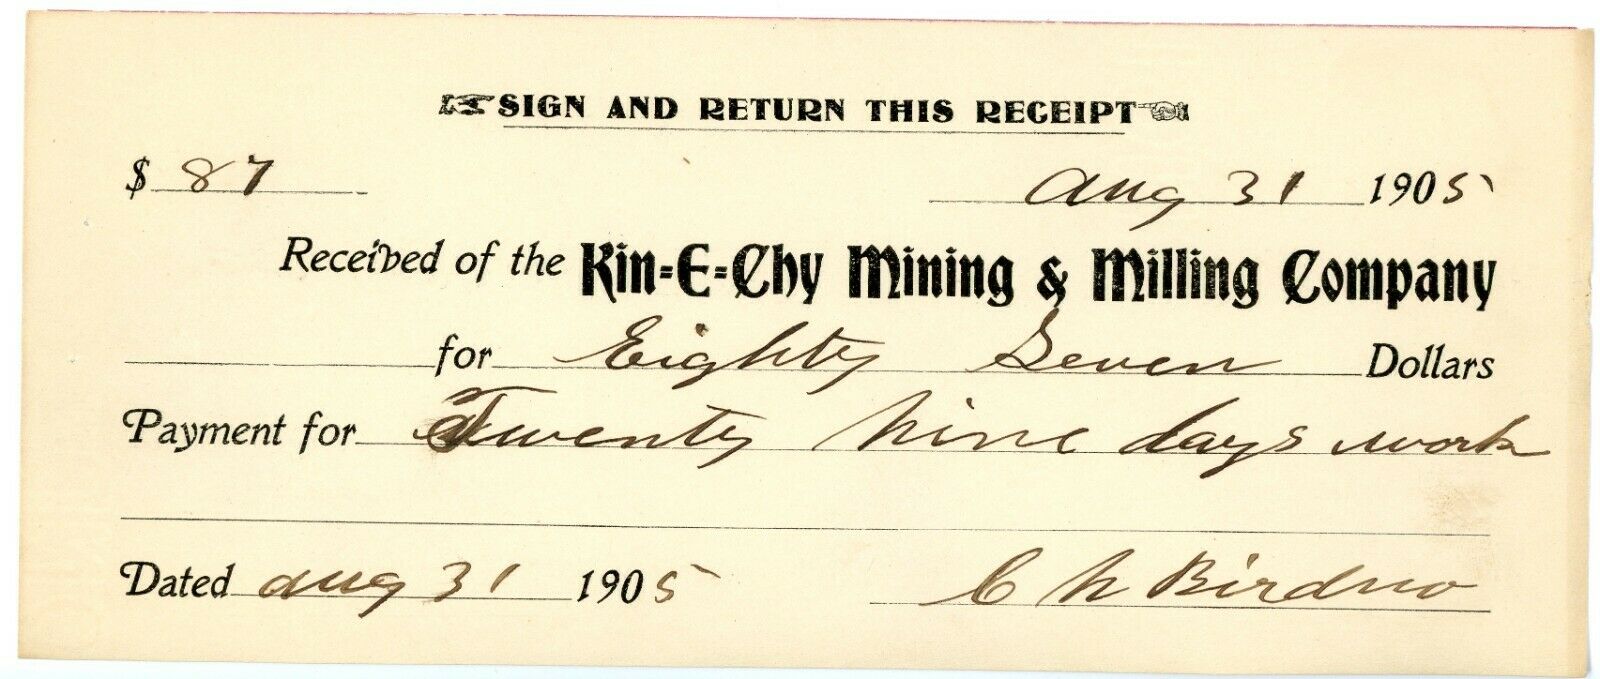 SIGN AND RETURN THIS RECEIPT
$ 87 Aug 31 1905
Received of the Kin-E-Chy Mining & Milling Company
for Eighty Seven Dollars
Payment for Twenty Nine days work
Dated Aug 31 1905 C N Birdno